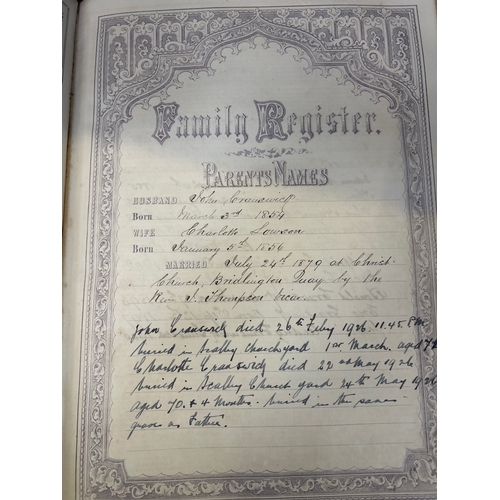 Family Register.
PARENTS NAMES
HUSBAND John Cranswick
Born March 3rd 1854
WIFE Charlotte Lowson
Born January 5th 1856
MARRIED July 24th 1879 at Christ
Church, Bridlington Quay by the
Rev J. Thompson vicar.
John Cranswick died 26th Feby 1926. 11.45 P.M.
buried in Scalby Churchyard 1st March, aged 72
Charlotte Cranswick died 22nd May 1926
buried in Scalby Church yard 24th May 1926
aged 70. & 4 Months. buried in the same
grave as Father.